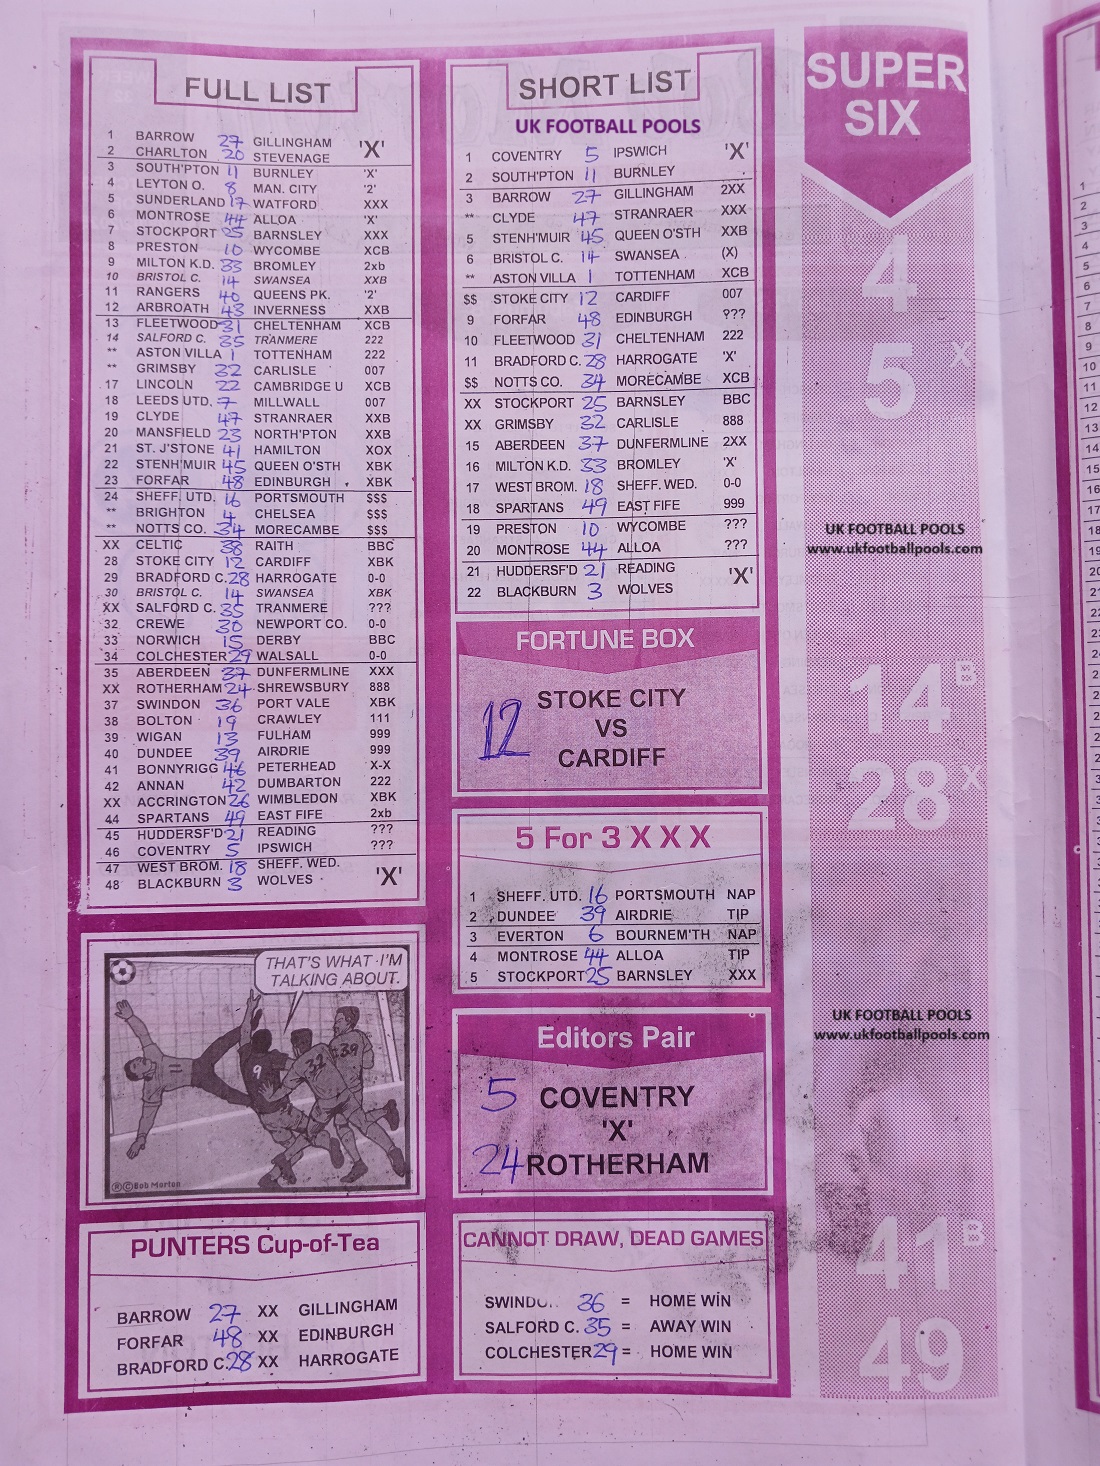 FULL LIST
1 BARROW 27 GILLINGHAM 'X'
2 CHARLTON 20 STEVENAGE
3 SOUTH'PTON 11 BURNLEY 'X'
4 LEYTON O. 8 MAN. CITY '2'
5 SUNDERLAND 17 WATFORD XXX
6 MONTROSE 44 ALLOA 'X'
7 STOCKPORT 25 BARNSLEY XXX
8 PRESTON 10 WYCOMBE XCB
9 MILTON K.D. 33 BROMLEY 2xb
10 BRISTOL C. 14 SWANSEA XXB
11 RANGERS 40 QUEENS PK. '2'
12 ARBROATH 43 INVERNESS XXB
13 FLEETWOOD 31 CHELTENHAM XCB
14 SALFORD C. 35 TRANMERE 222
** ASTON VILLA 1 TOTTENHAM 222
** GRIMSBY 32 CARLISLE 007
17 LINCOLN 22 CAMBRIDGE U XCB
18 LEEDS UTD. 7 MILLWALL 007
19 CLYDE 47 STRANRAER XXB
20 MANSFIELD 23 NORTH'PTON XXB
21 ST. J'STONE 41 HAMILTON XOX
22 STENH'MUIR 45 QUEEN O'STH XBK
23 FORFAR 48 EDINBURGH XBK
24 SHEFF. UTD. 16 PORTSMOUTH $$$
** BRIGHTON 4 CHELSEA $$$
** NOTTS CO. 34 MORECAMBE $$$
XX CELTIC 38 RAITH BBC
28 STOKE CITY 12 CARDIFF XBK
29 BRADFORD C. 28 HARROGATE 0-0
30 BRISTOL C. 14 SWANSEA XBK
XX SALFORD C. 35 TRANMERE ???
32 CREWE 30 NEWPORT CO. 0-0
33 NORWICH 15 DERBY BBC
34 COLCHESTER 29 WALSALL 0-0
35 ABERDEEN 37 DUNFERMLINE XXX
XX ROTHERHAM 24 SHREWSBURY 888
37 SWINDON 36 PORT VALE XBK
38 BOLTON 19 CRAWLEY 111
39 WIGAN 13 FULHAM 999
40 DUNDEE 39 AIRDRIE 999
41 BONNYRIGG 46 PETERHEAD X-X
42 ANNAN 42 DUMBARTON 222
XX ACCRINGTON 26 WIMBLEDON XBK
44 SPARTANS 49 EAST FIFE 2xb
45 HUDDERSF'D 21 READING ???
46 COVENTRY 5 IPSWICH ???
47 WEST BROM. 18 SHEFF. WED. 'X'
48 BLACKBURN 3 WOLVES
THAT'S WHAT I'M
TALKING ABOUT.
11
9
32
39
®©Bob Morton
PUNTERS Cup-of-Tea
BARROW 27 XX GILLINGHAM
FORFAR 48 XX EDINBURGH
BRADFORD C. 28 XX HARROGATE
SHORT LIST
UK FOOTBALL POOLS
1 COVENTRY 5 IPSWICH 'X'
2 SOUTH'PTON 11 BURNLEY
3 BARROW 27 GILLINGHAM 2XX
** CLYDE 47 STRANRAER XXX
5 STENH'MUIR 45 QUEEN O'STH XXB
6 BRISTOL C. 14 SWANSEA (X)
** ASTON VILLA 1 TOTTENHAM XCB
$$ STOKE CITY 12 CARDIFF 007
9 FORFAR 48 EDINBURGH ???
10 FLEETWOOD 31 CHELTENHAM 222
11 BRADFORD C. 28 HARROGATE 'X'
$$ NOTTS CO. 34 MORECAMBE XCB
XX STOCKPORT 25 BARNSLEY BBC
XX GRIMSBY 32 CARLISLE 888
15 ABERDEEN 37 DUNFERMLINE 2XX
16 MILTON K.D. 33 BROMLEY 'X'
17 WEST BROM. 18 SHEFF. WED. 0-0
18 SPARTANS 49 EAST FIFE 999
19 PRESTON 10 WYCOMBE ???
20 MONTROSE 44 ALLOA ???
21 HUDDERSF'D 21 READING 'X'
22 BLACKBURN 3 WOLVES
FORTUNE BOX
12 STOKE CITY
VS
CARDIFF
5 For 3 X X X
1 SHEFF. UTD. 16 PORTSMOUTH NAP
2 DUNDEE 39 AIRDRIE TIP
3 EVERTON 6 BOURNEM'TH NAP
4 MONTROSE 44 ALLOA TIP
5 STOCKPORT 25 BARNSLEY XXX
Editors Pair
5 COVENTRY
'X'
24 ROTHERHAM
CANNOT DRAW, DEAD GAMES
36 = HOME WIN
SALFORD C. 35 = AWAY WIN
COLCHESTER 29 = HOME WIN
SUPER
SIX
4
5 X
UK FOOTBALL POOLS
www.ukfootballpools.com
14 B
28 X
UK FOOTBALL POOLS
www.ukfootballpools.com
41 B
49